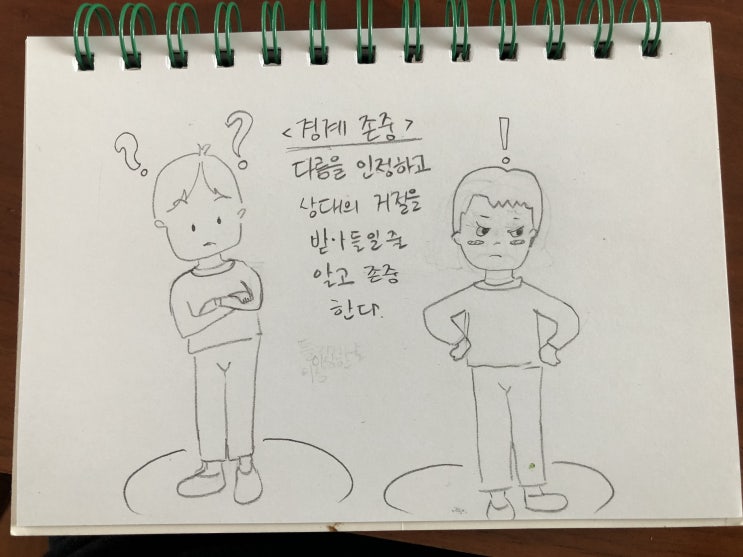 ? ?
<경계 존중>
!
다름을 인정하고
상대의 거절을
받아들일 줄
알고 존중
한다.